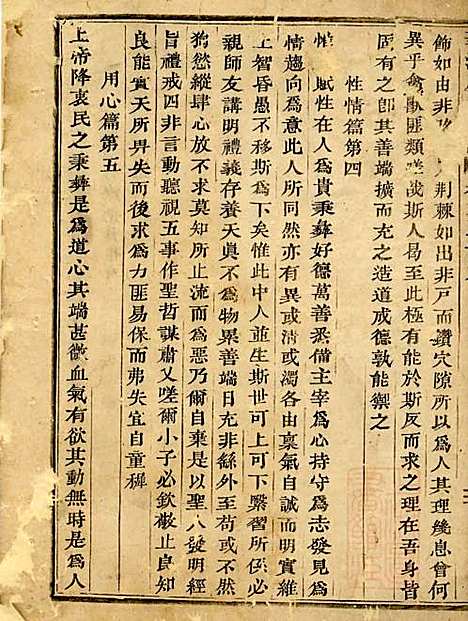 飾如由非路荆棘如出非戸而鑽穴隙所以爲人其理幾息曾何
異乎禽獸匪類嗟哉斯人曷至此極有能於斯反而求之理在吾身皆
固有之卽其善端擴而充之造道成德孰能禦之
性情篇第四
惟 賦性在人爲貴秉彝好德萬善悉備主宰爲心持守爲志發見爲
情趨向爲意此人所同然亦有異或清或濁各由稟氣自誠而明實維
上智昏愚不移斯爲下矣惟此中人並生斯世可上可下繫習所係必
親師友講明禮義存養天眞不爲物累善端日充非緣外至苟或不然
狥慾縱肆心放不求莫知所止流而爲惡乃自棄是以聖人發明經
旨禮戒四非言動聽視五事作聖哲謀肅乂嗟爾小子必欽敬止良知
良能實天所畀失而後求爲力匪易保而弗失宜自童穉
用心篇第五
上帝降衷民之秉彝是爲道心其端甚微血氣有欲其動無時是爲人